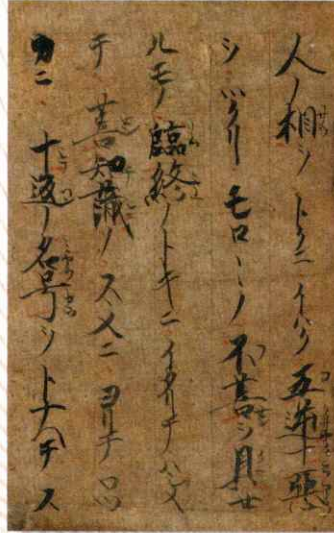 人ノ相ヲトクニイハク五逆十惡
ヲツクリモロ〳〵ノ不善ヲ具セ
ルモノ臨終ノトキニイタリテハシメ
テ善知識ノスヽメニヨリテ
カニ十返ノ名号ヲトナヘテス